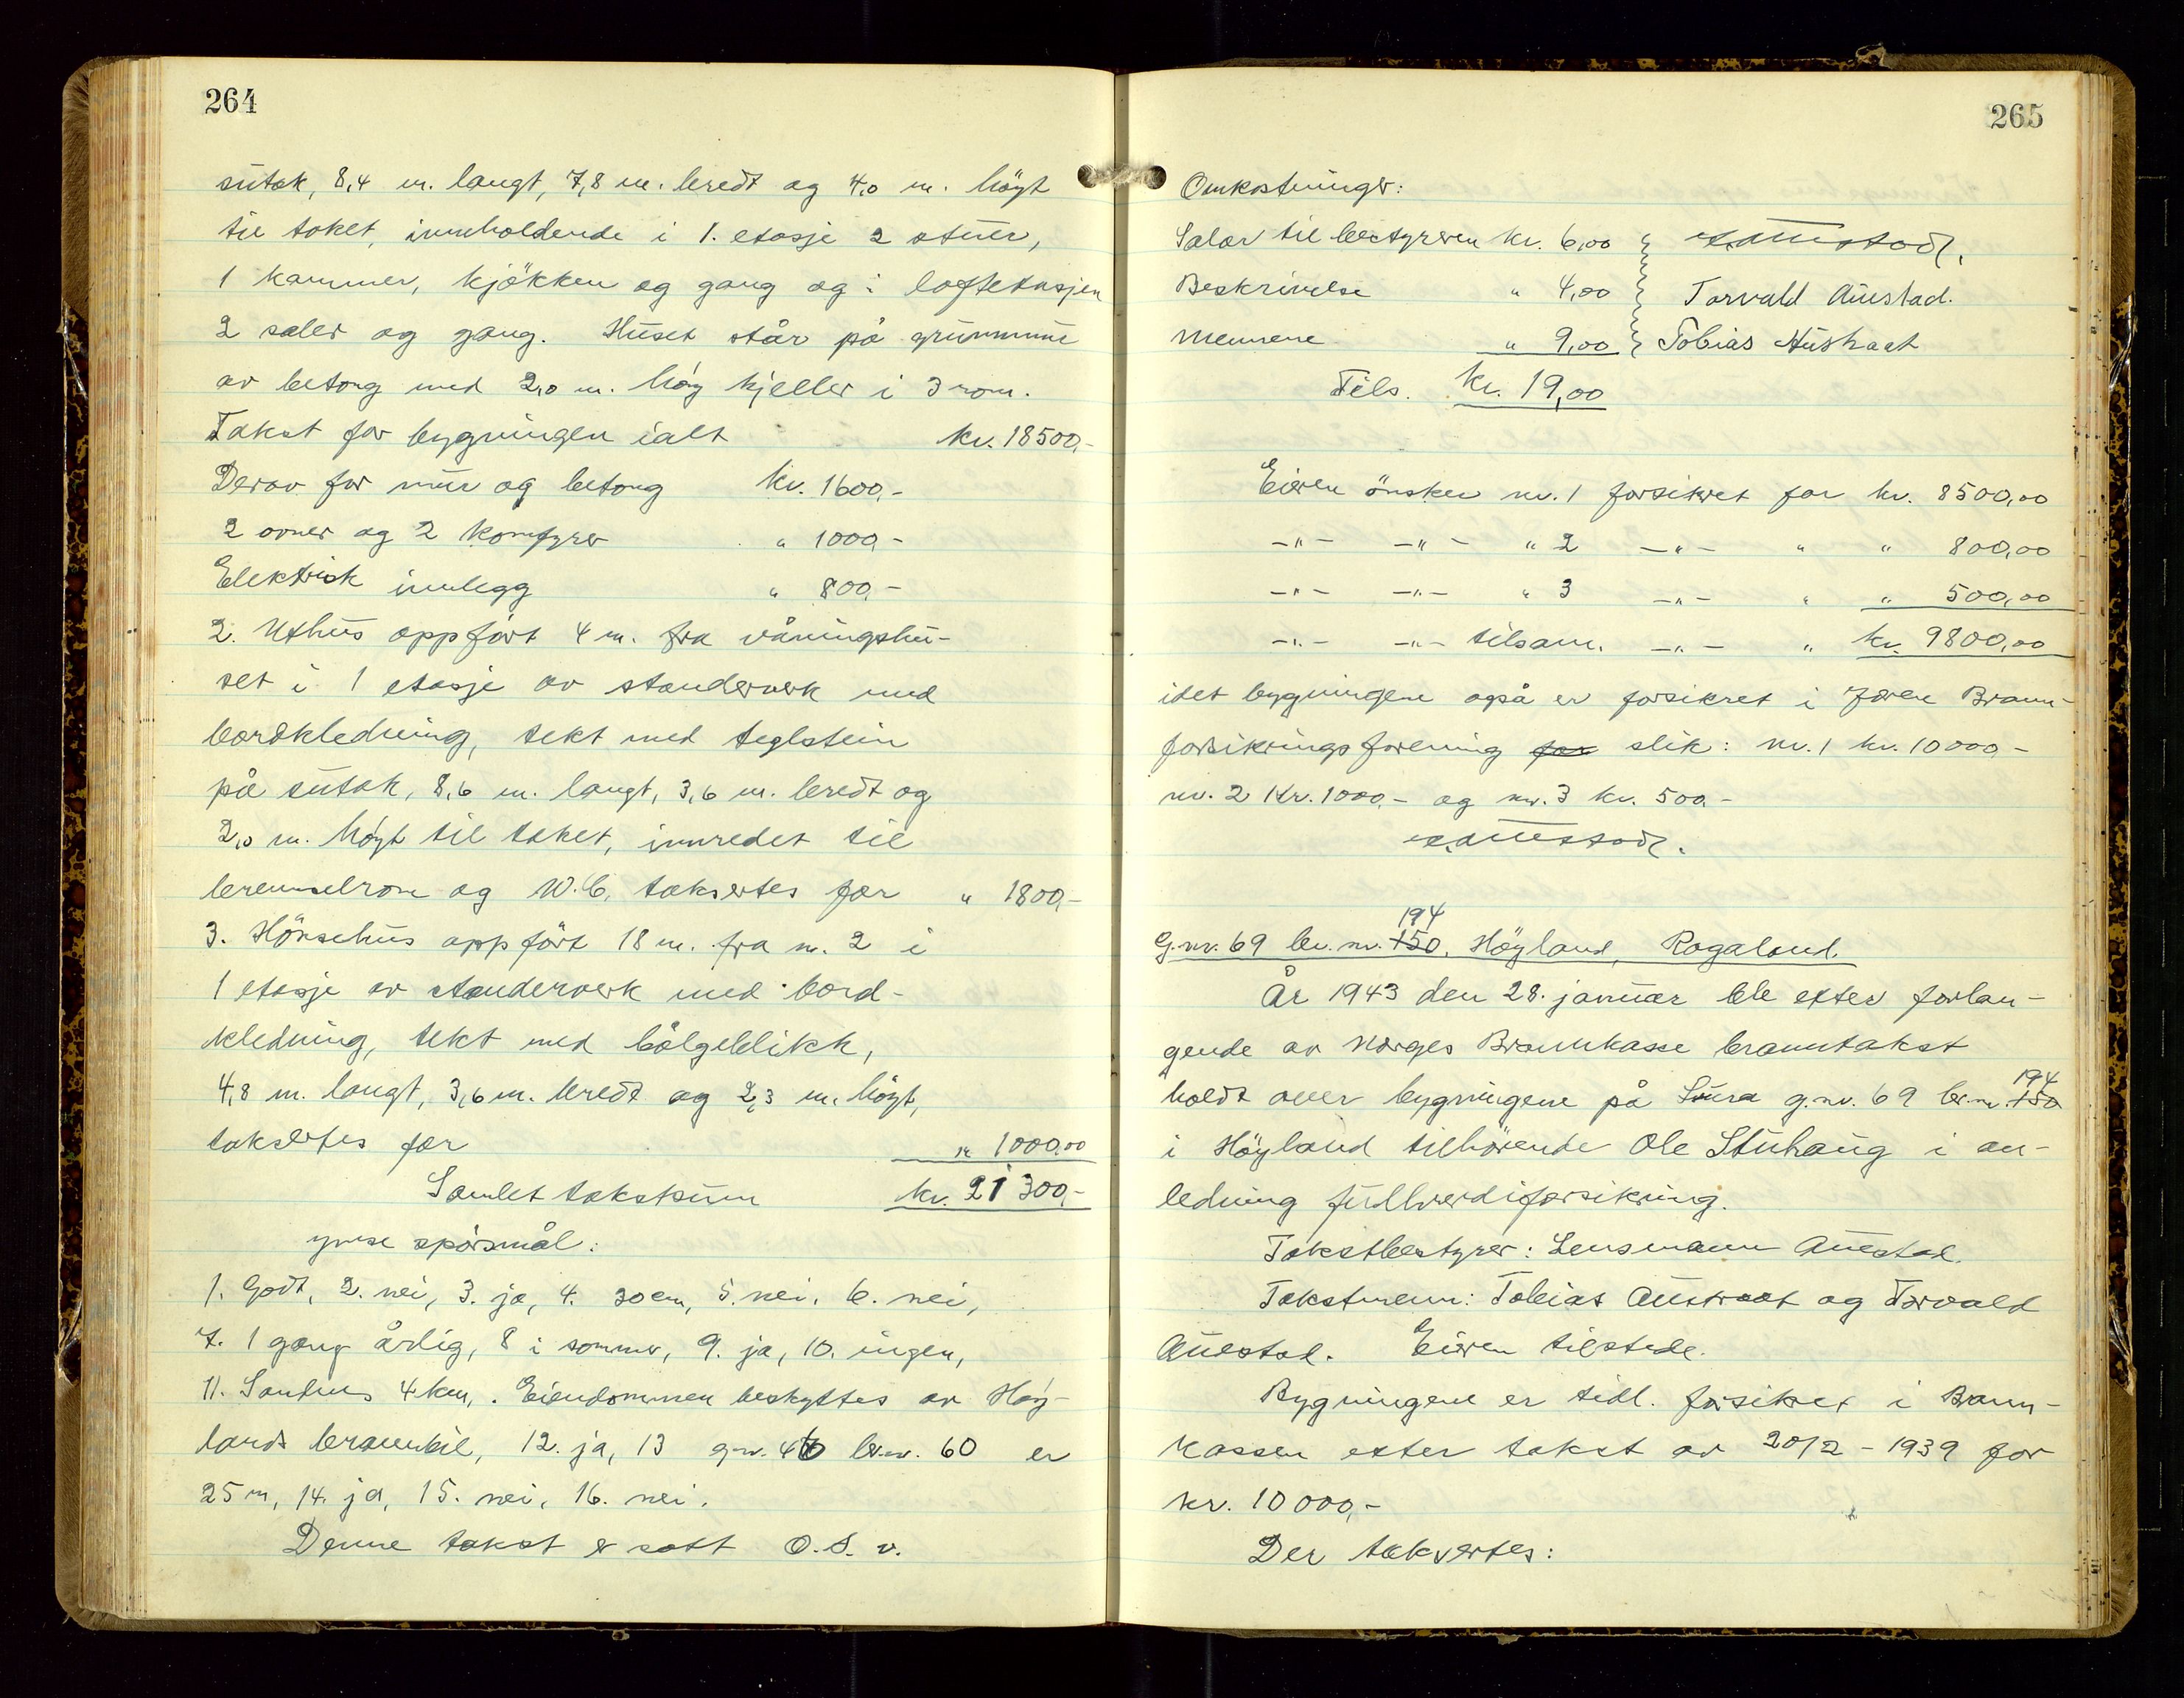 264
sutak, 8,4 m. langt, 7,8 m. bredt og 4,0 m. höyt
til taket, inneholdende i 1. etasje 2 stuer,
1 kammer, kjökken og gang og i loftetasjen
2 saler og gang. Huset står på grunnmur
av betong med 2,0 m. höy kjeller i 3 rom.
Takst for bygningen ialt kr. 18500,-
Derav for mur og betong kr. 1600,-
2 ovner og 2 komfyrer " 1000,-
Elektrisk innlegg " 800,-
2. Uthus oppfört 4 m. fra våningshu-
set i 1 etasje av standerverk med
bordkledning, tekt med teglstein
på sutak, 8,6 m. langt, 3,6 m. bredt og
2,0 m. höyt til taket, innredet til
brenselrom og W.C. taksertes for " 1800,-
3. Hönsehus oppfört 18 m. fra nr. 2 i
1 etasje av standerverk med bord-
kledning, tekt med bölgeblikk,
4,8 m. langt, 3,6 m. bredt og 2,3 m. höyt,
taksertes for " 1000,00
Samlet takstsum kr. 21300,-
ymse spörsmål:
1. Godt, 2. nei, 3. ja, 4. 30 cm, 5. nei, 6. nei,
7. 1 gang årlig, 8 i sommer, 9. ja, 10. ingen,
11. Sandnes 4 km,. Eiendommen beskyttes av Höy-
lands brannbil, 12. ja, 13 g.nr. 46 br.nr. 60 er
25 m, 14. ja, 15. nei, 16. nei.
Denne takst er satt O.S.v.
265
Omkostninger:
Salær til bestyreren kr. 6,00 Auestad.
Beskrivelse " 4,00 Torvald Auestad.
Mennene " 9,00 Tobias Austraat
Tils. kr. 19,00
Eieren önsker nr. 1 forsikret for kr. 8500,00
-"- -"- " 2 -"- " " 800,00
-"- -"- " 3 -"- " " 500,00
-"- -"- tilsam. -"- " kr. 9800,00
idet bygningene også er forsikret i Jæren Brann-
forsikringsforening for slik: nr. 1 kr. 10000,-
nr. 2 Kr. 1000,- og nr. 3 kr. 500.-
Auestad.
194
G.nr. 69 br.nr. 150, Höyland, Rogaland.
År 1943 den 28. januar ble etter forlan-
gende av Norges Brannkasse branntakst
194
holdt over bygningene på Lura g.nr. 69 br.nr. 150
i Höyland tilhörende Ole Stuhaug i an-
ledning fullverdiforsikring.
Takstbestyrer: Lensmann Auestad.
Takstmenn: Tobias Austraat og Torvald
Auestad. Eieren tilstede.
Bygningene er tidl. forsikret i Brann-
kassen etter takst av 20/2 - 1939 for
kr. 10000,-
Der taksertes: